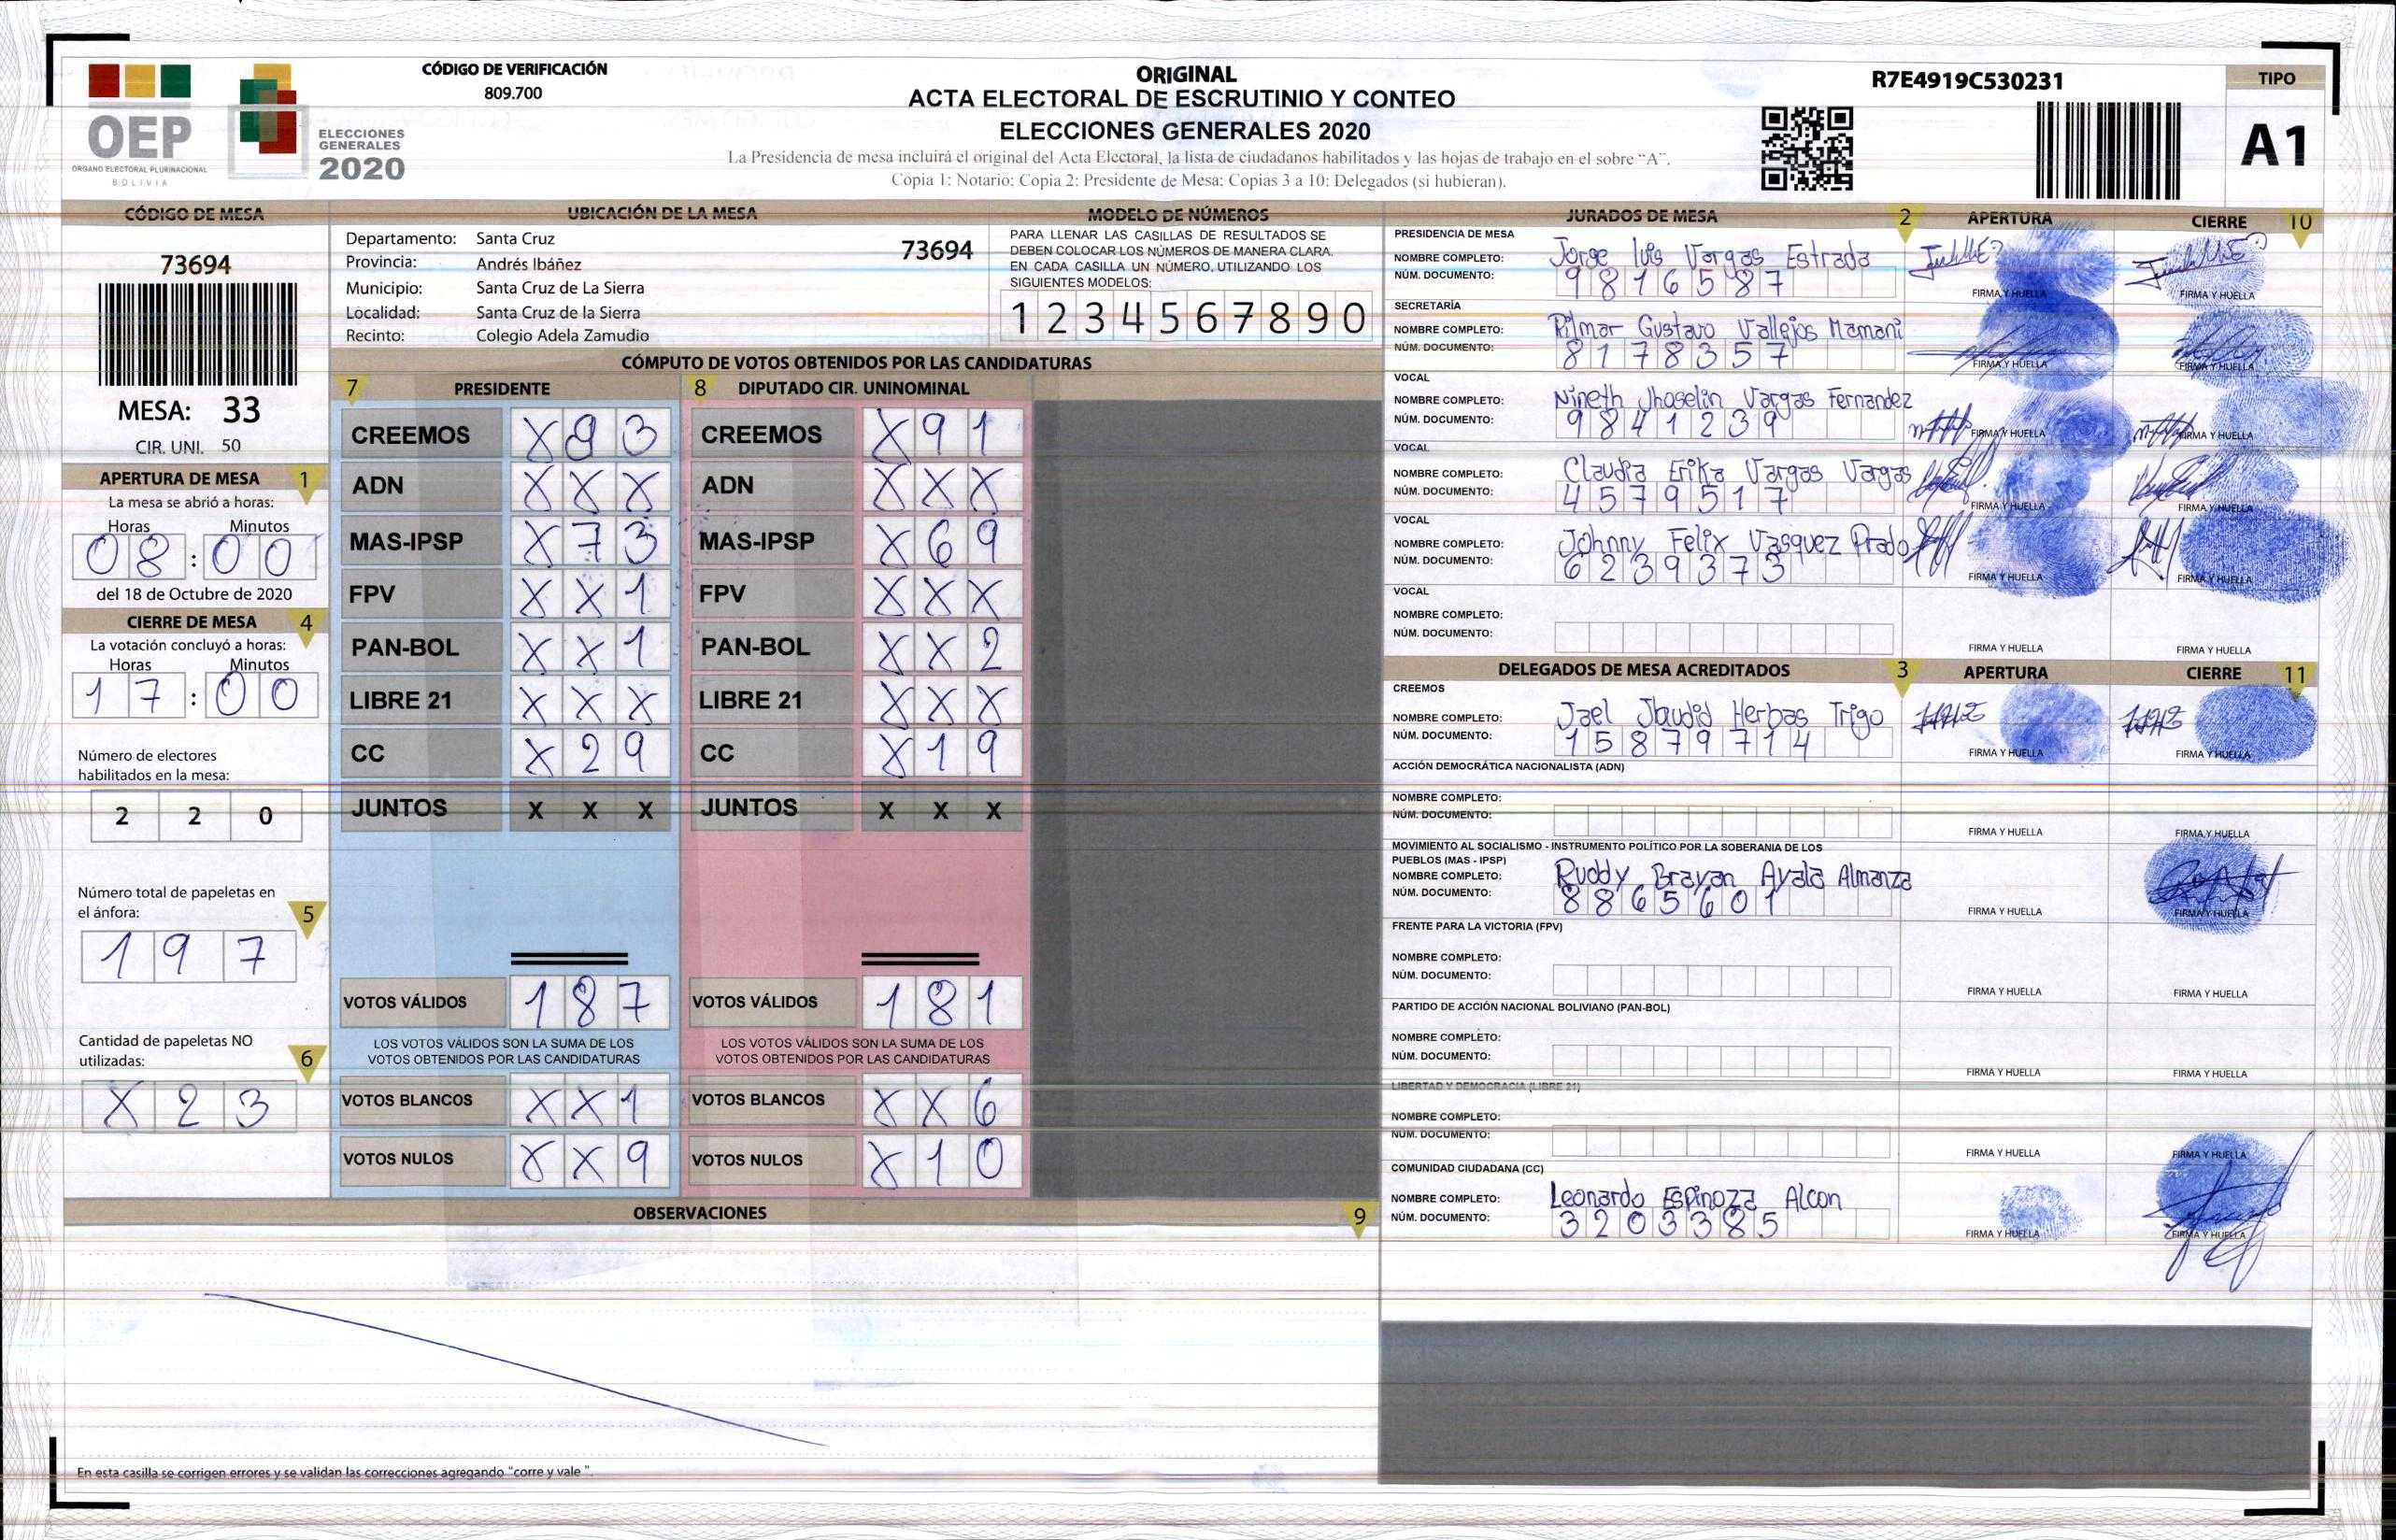 CÓDIGO DE VERIFICACIÓN
809.700
OEP
ORGANO ELECTORAL PLURINACIONAL
BOLIVIA
ELECCIONES
GENERALES
2020
ORIGINAL
ACTA ELECTORAL DE ESCRUTINIO Y CONTEO
ELECCIONES GENERALES 2020
La Presidencia de mesa incluirá el original del Acta Electoral, la lista de ciudadanos habilitados y las hojas de trabajo en el sobre “A”.
Copia 1: Notario: Copia 2: Presidente de Mesa: Copias 3 a 10: Delegados (si hubieran).
R7E4919C530231
TIPO
A1
CÓDIGO DE MESA
73694
MESA: 33
CIR. UNI. 50
APERTURA DE MESA 1
La mesa se abrió a horas:
Horas Minutos
08:00
del 18 de Octubre de 2020
CIERRE DE MESA 4
La votación concluyó a horas:
Horas Minutos
17:00
Número de electores
habilitados en la mesa:
2 2 0
Número total de papeletas en
el ánfora: 5
1 9 7
Cantidad de papeletas NO
utilizadas: 6
X 2 3
UBICACIÓN DE LA MESA
Departamento: Santa Cruz 73694
Provincia: Andrés Ibáñez
Municipio: Santa Cruz de La Sierra
Localidad: Santa Cruz de la Sierra
Recinto: Colegio Adela Zamudio
MODELO DE NÚMEROS
PARA LLENAR LAS CASILLAS DE RESULTADOS SE
DEBEN COLOCAR LOS NÚMEROS DE MANERA CLARA.
EN CADA CASILLA UN NÚMERO, UTILIZANDO LOS
SIGUIENTES MODELOS:
1 2 3 4 5 6 7 8 9 0
CÓMPUTO DE VOTOS OBTENIDOS POR LAS CANDIDATURAS
7 PRESIDENTE 8 DIPUTADO CIR. UNINOMINAL
CREEMOS X 8 3 CREEMOS X 9 1
ADN X X X ADN X X X
MAS-IPSP X 7 3 MAS-IPSP X 6 9
FPV X X 1 FPV X X X
PAN-BOL X X 1 PAN-BOL X X 2
LIBRE 21 X X X LIBRE 21 X X X
CC X 2 9 CC X 1 9
JUNTOS X X X JUNTOS X X X
VOTOS VÁLIDOS 1 8 7 VOTOS VÁLIDOS 1 8 1
LOS VOTOS VÁLIDOS SON LA SUMA DE LOS LOS VOTOS VÁLIDOS SON LA SUMA DE LOS
VOTOS OBTENIDOS POR LAS CANDIDATURAS VOTOS OBTENIDOS POR LAS CANDIDATURAS
VOTOS BLANCOS X X 1 VOTOS BLANCOS X X 6
VOTOS NULOS X X 9 VOTOS NULOS X 1 0
OBSERVACIONES 9
En esta casilla se corrigen errores y se validan las correcciones agregando “corre y vale ”.
JURADOS DE MESA 2 APERTURA CIERRE 10
PRESIDENCIA DE MESA
NOMBRE COMPLETO: Jorge luis Vargas Estrada
NÚM. DOCUMENTO: 9816587
FIRMA Y HUELLA FIRMA Y HUELLA
SECRETARÍA
NOMBRE COMPLETO: Rilmar Gustavo Vallejos Mamani
NÚM. DOCUMENTO: 8178357
FIRMA Y HUELLA FIRMA Y HUELLA
VOCAL
NOMBRE COMPLETO: Nineth Jhoselin Vargas Fernandez
NÚM. DOCUMENTO: 9841239
FIRMA Y HUELLA FIRMA Y HUELLA
VOCAL
NOMBRE COMPLETO: Claudia Erika Vargas Vargas
NÚM. DOCUMENTO: 4579517
FIRMA Y HUELLA FIRMA Y HUELLA
VOCAL
NOMBRE COMPLETO: Johnny Felix Vasquez Prado
NÚM. DOCUMENTO: 6239373
FIRMA Y HUELLA FIRMA Y HUELLA
VOCAL
NOMBRE COMPLETO:
NÚM. DOCUMENTO:
FIRMA Y HUELLA FIRMA Y HUELLA
DELEGADOS DE MESA ACREDITADOS 3 APERTURA CIERRE 11
CREEMOS
NOMBRE COMPLETO: Jael Herbas Trigo
NÚM. DOCUMENTO: 15879714
FIRMA Y HUELLA FIRMA Y HUELLA
ACCIÓN DEMOCRÁTICA NACIONALISTA (ADN)
NOMBRE COMPLETO:
NÚM. DOCUMENTO:
FIRMA Y HUELLA FIRMA Y HUELLA
MOVIMIENTO AL SOCIALISMO - INSTRUMENTO POLÍTICO POR LA SOBERANIA DE LOS
PUEBLOS (MAS - IPSP)
NOMBRE COMPLETO: Ruddy Brayan Ayala Almanza
NÚM. DOCUMENTO: 8865601
FIRMA Y HUELLA FIRMA Y HUELLA
FRENTE PARA LA VICTORIA (FPV)
NOMBRE COMPLETO:
NÚM. DOCUMENTO:
FIRMA Y HUELLA FIRMA Y HUELLA
PARTIDO DE ACCIÓN NACIONAL BOLIVIANO (PAN-BOL)
NOMBRE COMPLETO:
NÚM. DOCUMENTO:
FIRMA Y HUELLA FIRMA Y HUELLA
LIBERTAD Y DEMOCRACIA (LIBRE 21)
NOMBRE COMPLETO:
NÚM. DOCUMENTO:
FIRMA Y HUELLA FIRMA Y HUELLA
COMUNIDAD CIUDADANA (CC)
NOMBRE COMPLETO: Leonardo Espinoza Alcon
NÚM. DOCUMENTO: 3203385
FIRMA Y HUELLA FIRMA Y HUELLA